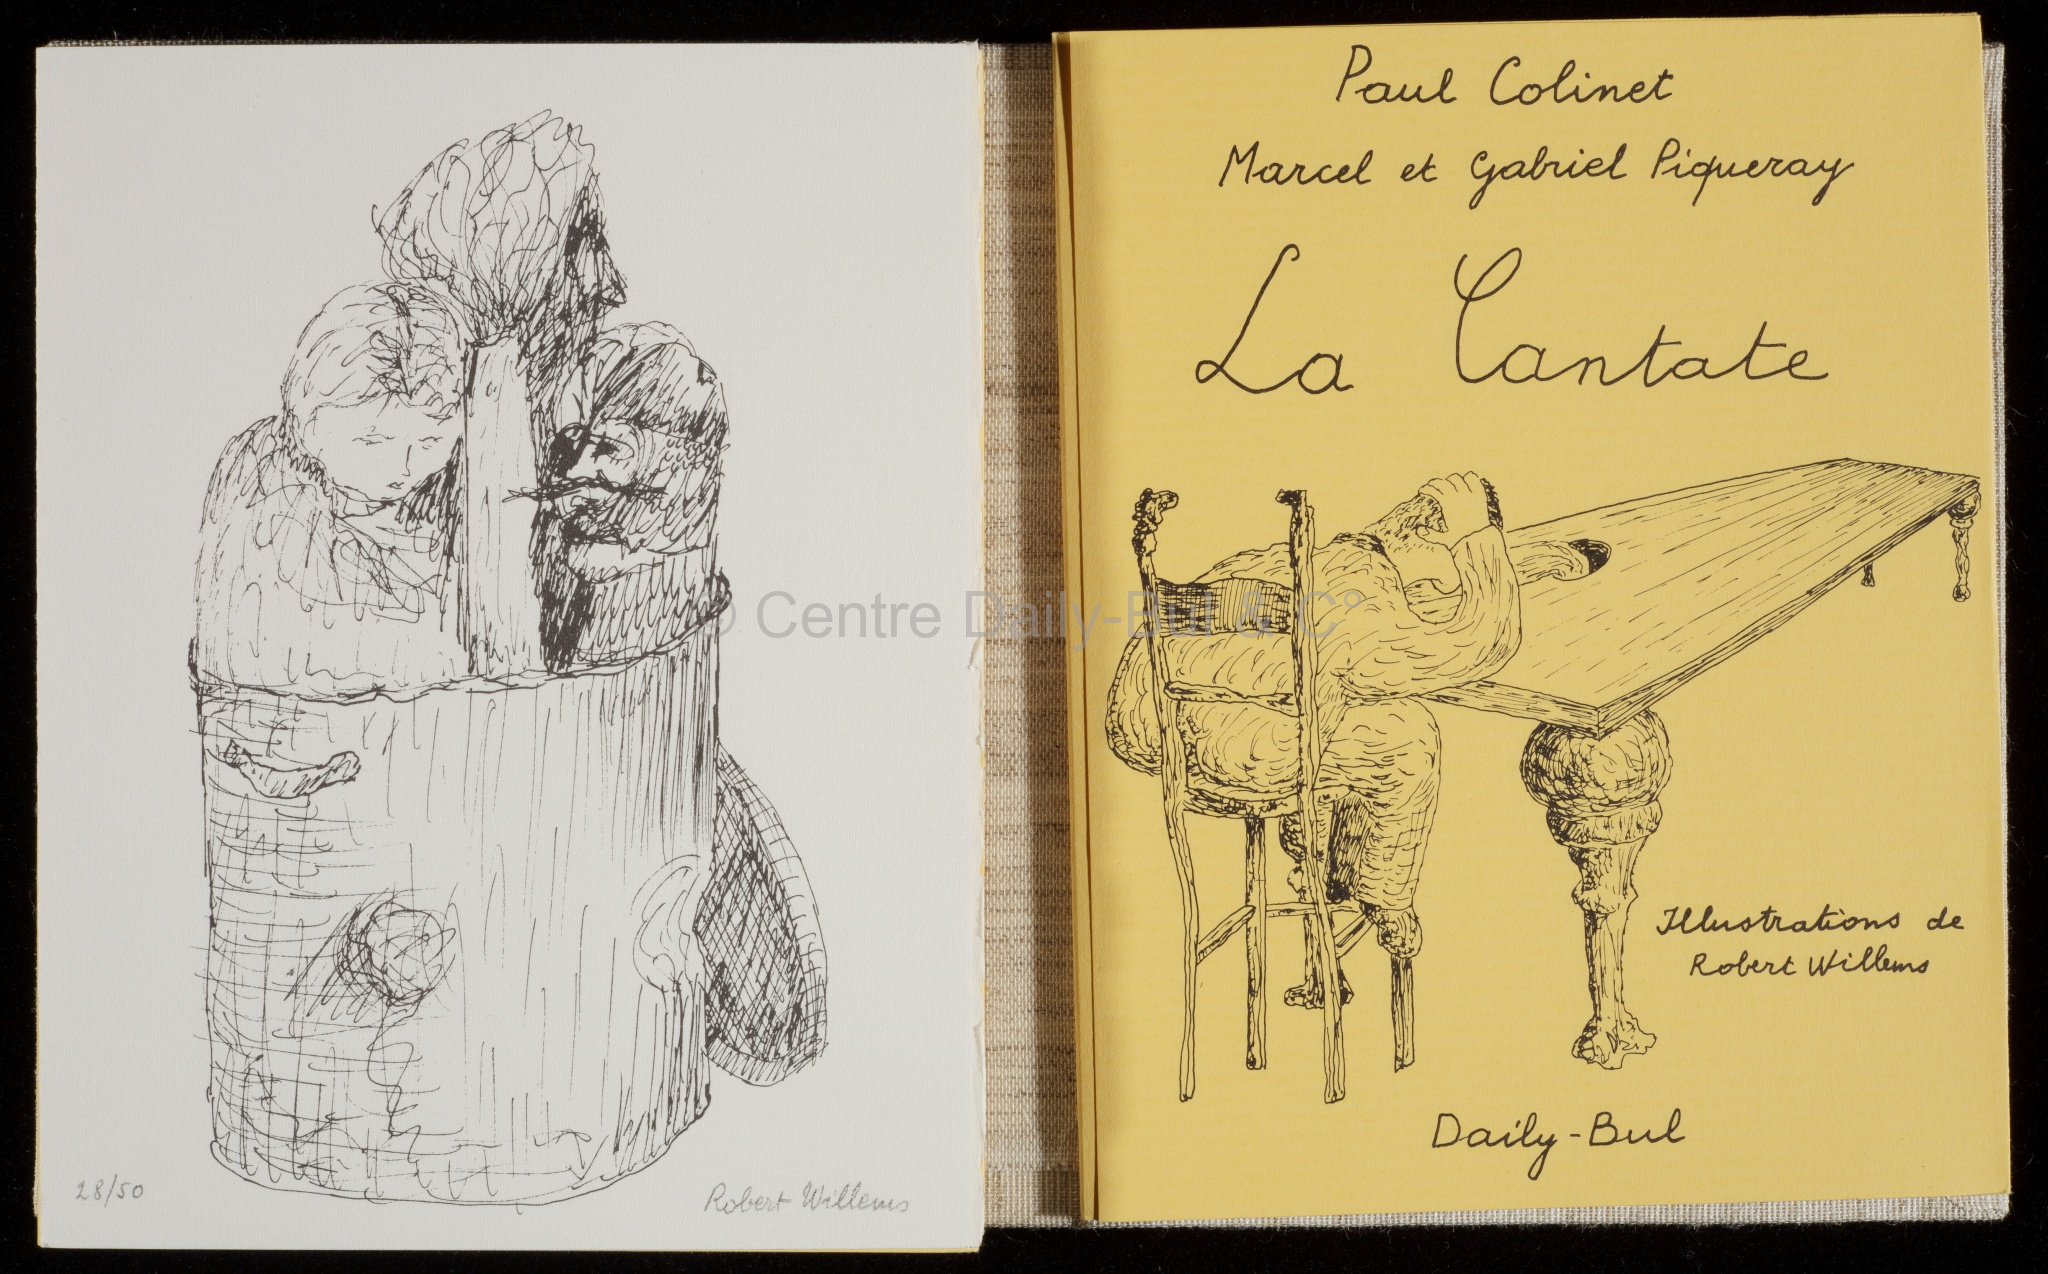 28/50
Robert Willems
Paul Colinet
Marcel et Gabriel Piqueray
La Cantate
Illustrations de
Robert Willems
Daily-Bul
© Centre Daily-Bul & C°